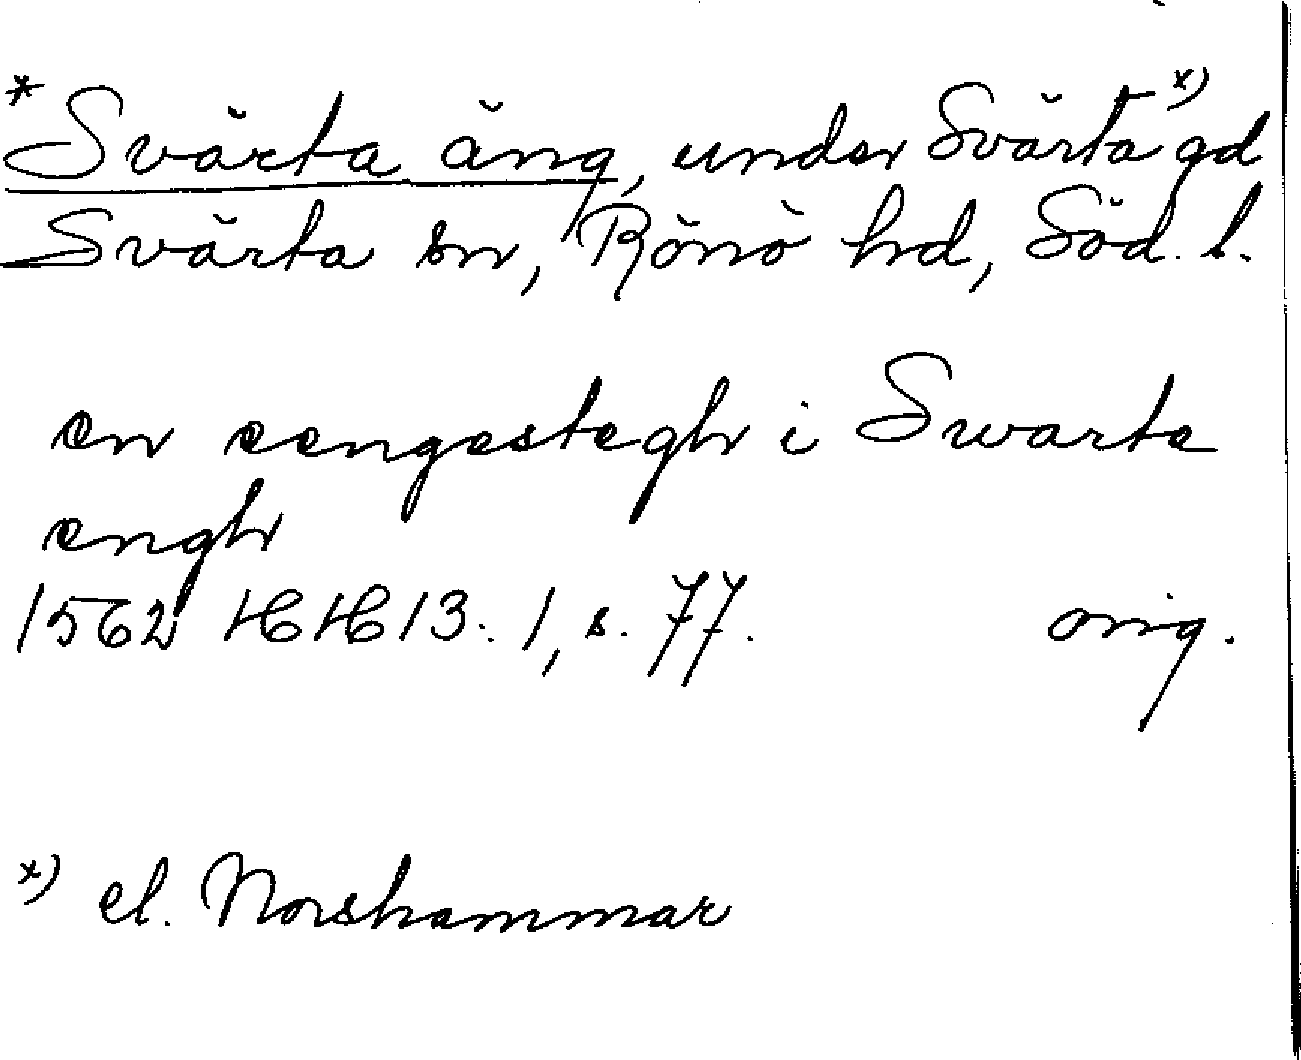 * Svärta äng, under Svärta x) gd
Svärta sn, Rönö hd, Söd. l.
en eengestegh i Swarte
engh
1562 HH 13:1, s. 77. orig.
x) el. Norshammar